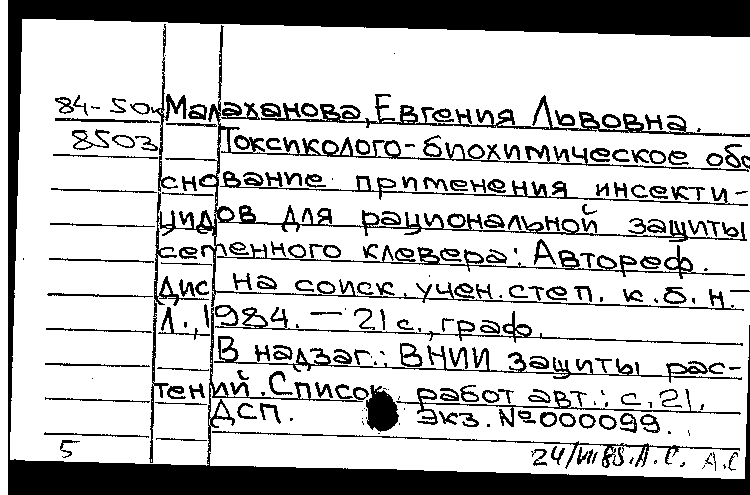 84-50к Малаханова, Евгения Львовна.
8503 Токсиколого-биохимическое обо
снование применения инсекти-
цидов для рациональной защиты
семенного клевера: Автореф.
дис на соиск. учен. степ. к.б.н. —
Л., 1984. — 21 с., граф.
В надзаг.: ВНИИ защиты рас-
тений. Список работ авт.: с. 21.
ДСП. Экз. №000099.
5 24/VII 85. А.С. А.С